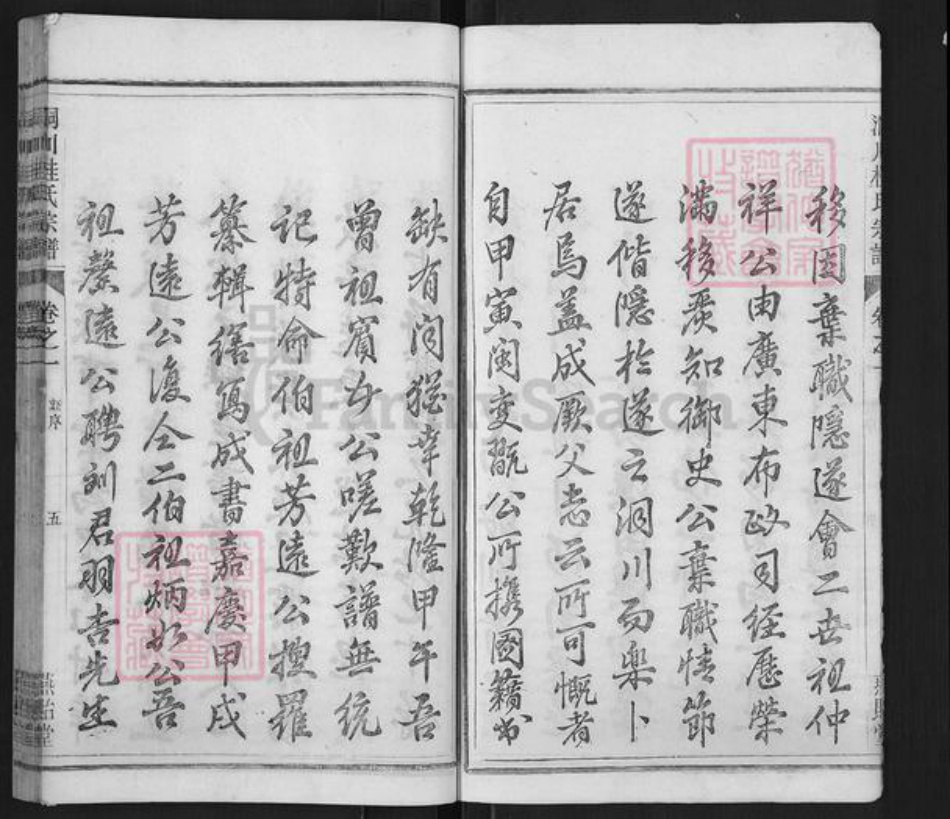 移因棄職隱遂會二世祖仲
祥公由廣東布政司經歷榮
滿移展知御史公棄職情節
遂偕隱於遂之洞川而樂卜
居焉蓋成厥父志云所可慨者
自甲寅閩變翫公所攜國籍或
缺有间猶幸乾隆甲午吾
曾祖賓女公嗟歎譜無统
记特命伯祖芳遠公搜羅
纂輯繕寫成書嘉慶甲戌
芳遠公復仝二伯祖炳如公吾
祖馨遠公聘訓君羽吉先生
洞川桂氏宗譜
卷之一
五
燕貽堂
FamilySearch